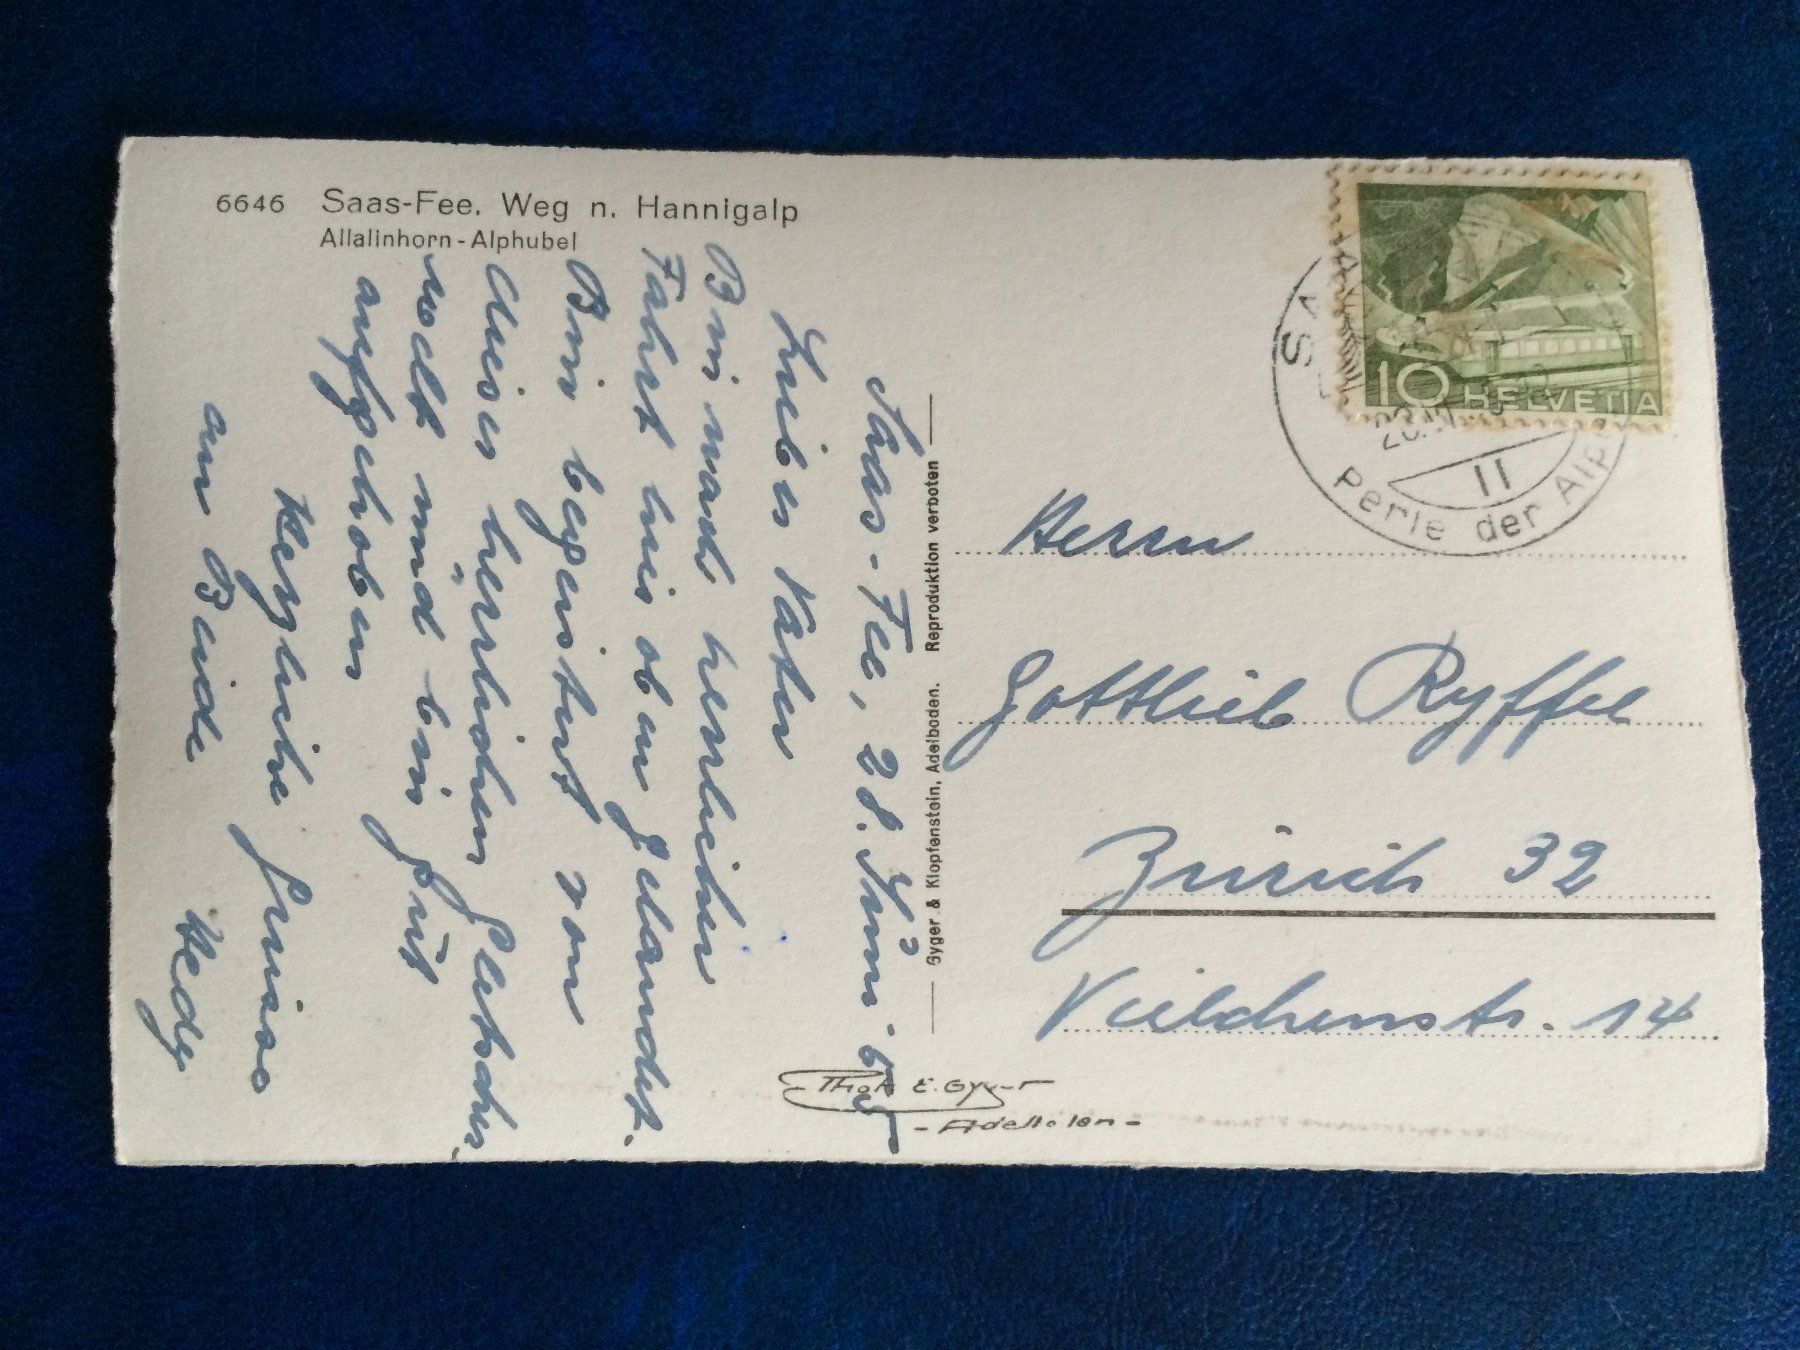 6646 Saas-Fee. Weg n. Hannigalp
Allalinhorn-Alphubel
Saas-Fee, 28. Juni
Lieber Vater
Bin nach herrlicher
Fahrt hier oben gelandet.
Bin begeistert von
dieser herrlichen Gletscher
welt und bin gut
aufgehoben
Herzliche Grüsse
an Beide Hedy
Gyger & Klopfenstein, Adelboden. Reproduktion verboten
Phot E. Gyger
- Adelboden -
10 HELVETIA
II
Perle der Alpen
Herrn
Gottlieb Ryffel
Zürich 32
Veilchenstr. 14